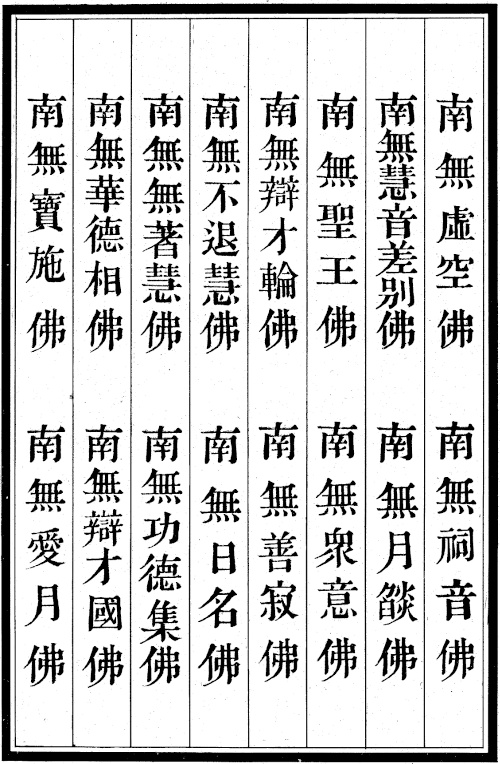 南無虛空佛 南無祠音佛
南無慧音差別佛 南無月燄佛
南無聖王佛 南無眾意佛
南無辯才輪佛 南無善寂佛
南無不退慧佛 南無日名佛
南無無著慧佛 南無功德集佛
南無華德相佛 南無辯才國佛
南無寶施佛 南無愛月佛